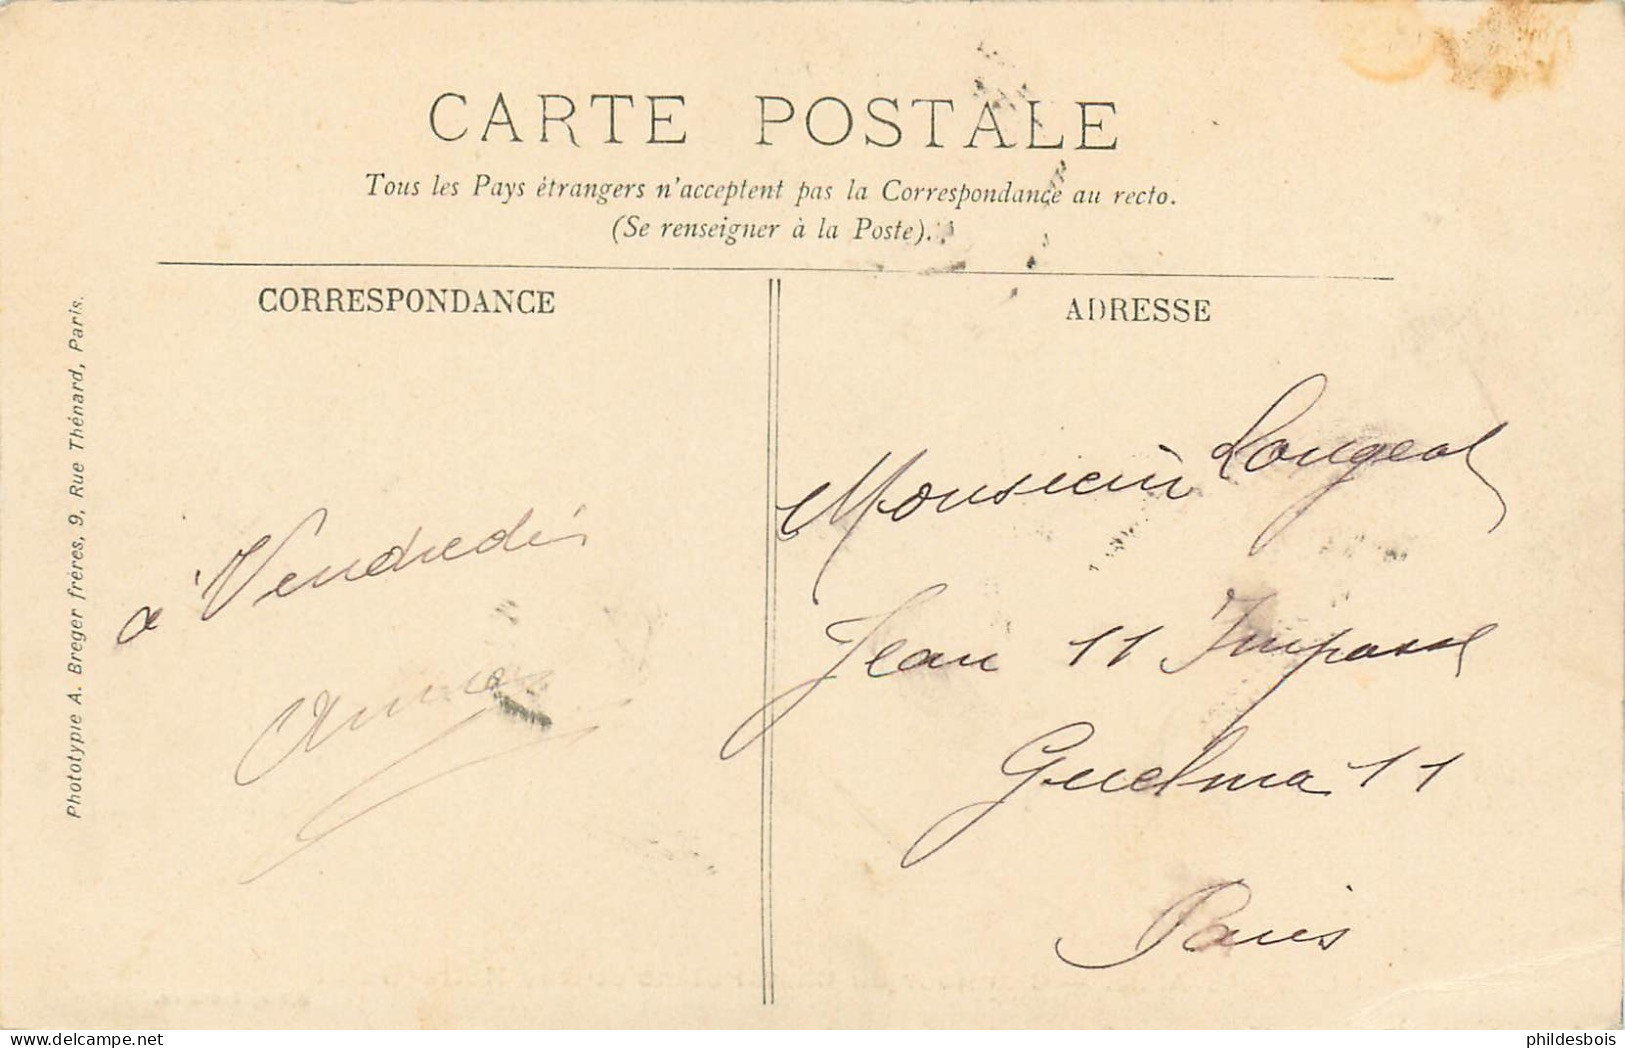 CARTE POSTALE
Tous les Pays étrangers n'acceptent pas la Correspondance au recto.
(Se renseigner à la Poste).
CORRESPONDANCE
à Vendredi
Phototypie A. Breger frères, 9, Rue Thénard, Paris.
ADRESSE
Monsieur Lougeot
Jean 11 Impasse
Guelma 11
Paris
phildesbois